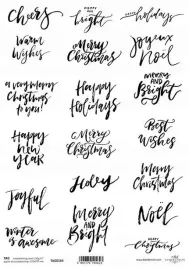 Cheers
Happy and bright
happy holidays
Warm Wishes
Merry Christmas
Joyeux Noël
a very merry Christmas to you!
Happy Holidays
MERRY AND Bright
Happy new year
Merry Christmas
Best Wishes
Joyful
Holly
Merry Christmas
Winter is awesome
Merry and Bright
Noël
Christmas